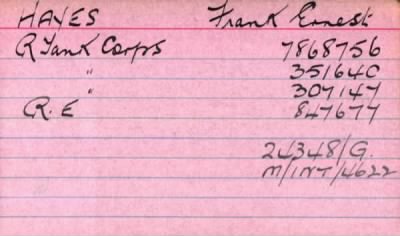 HAYES Frank Ernest
R Tank Corps 7868756
" 351640
" 307147
R.E 847677
24348/G.
M/INT/4622